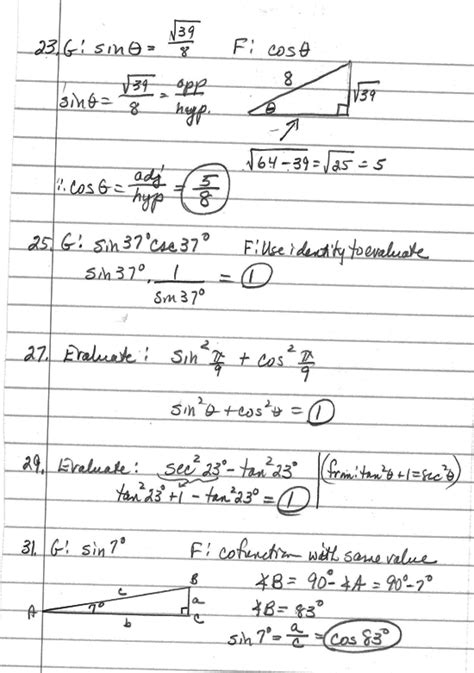 23. G: sinθ = √39/8 F: cosθ
sinθ = √39/8 = opp/hyp.
8 √39 θ
√64-39 = √25 = 5
∴ cosθ = adj/hyp = 5/8
25. G: sin37° csc37° F: Use identity to evaluate
sin37° · 1/sin37° = 1
27. Evaluate: sin² π/9 + cos² π/9
sin²θ + cos²θ = 1
29. Evaluate: sec²23° - tan²23° (from: tan²θ + 1 = sec²θ)
tan²23° + 1 - tan²23° = 1
31. G: sin7° F: cofunction with same value
A 7° c B a b C
∡B = 90° - ∡A = 90° - 7°
∡B = 83°
sin7° = a/c = cos83°